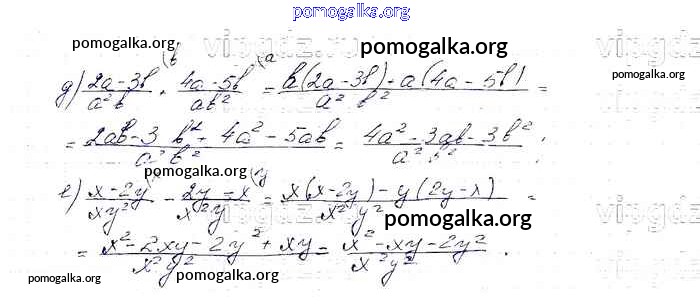 pomogalka.org
pomogalka.org pomogalka.org
(b (a
д) 2a-3b / a²b + 4a-5b / ab² = b(2a-3b)+a(4a-5b) / a²b² = pomogalka.org
= 2ab-3b²+4a²-5ab / a²b² = 4a²-3ab-3b² / a²b² ;
pomogalka.org
е) x-2y / xy² - 2y-x / x²y = x(x-2y)-y(2y-x) / x²y² =
pomogalka.org
= x²-2xy-2y²+xy / x²y² = x²-xy-2y² / x²y² .
pomogalka.org pomogalka.org